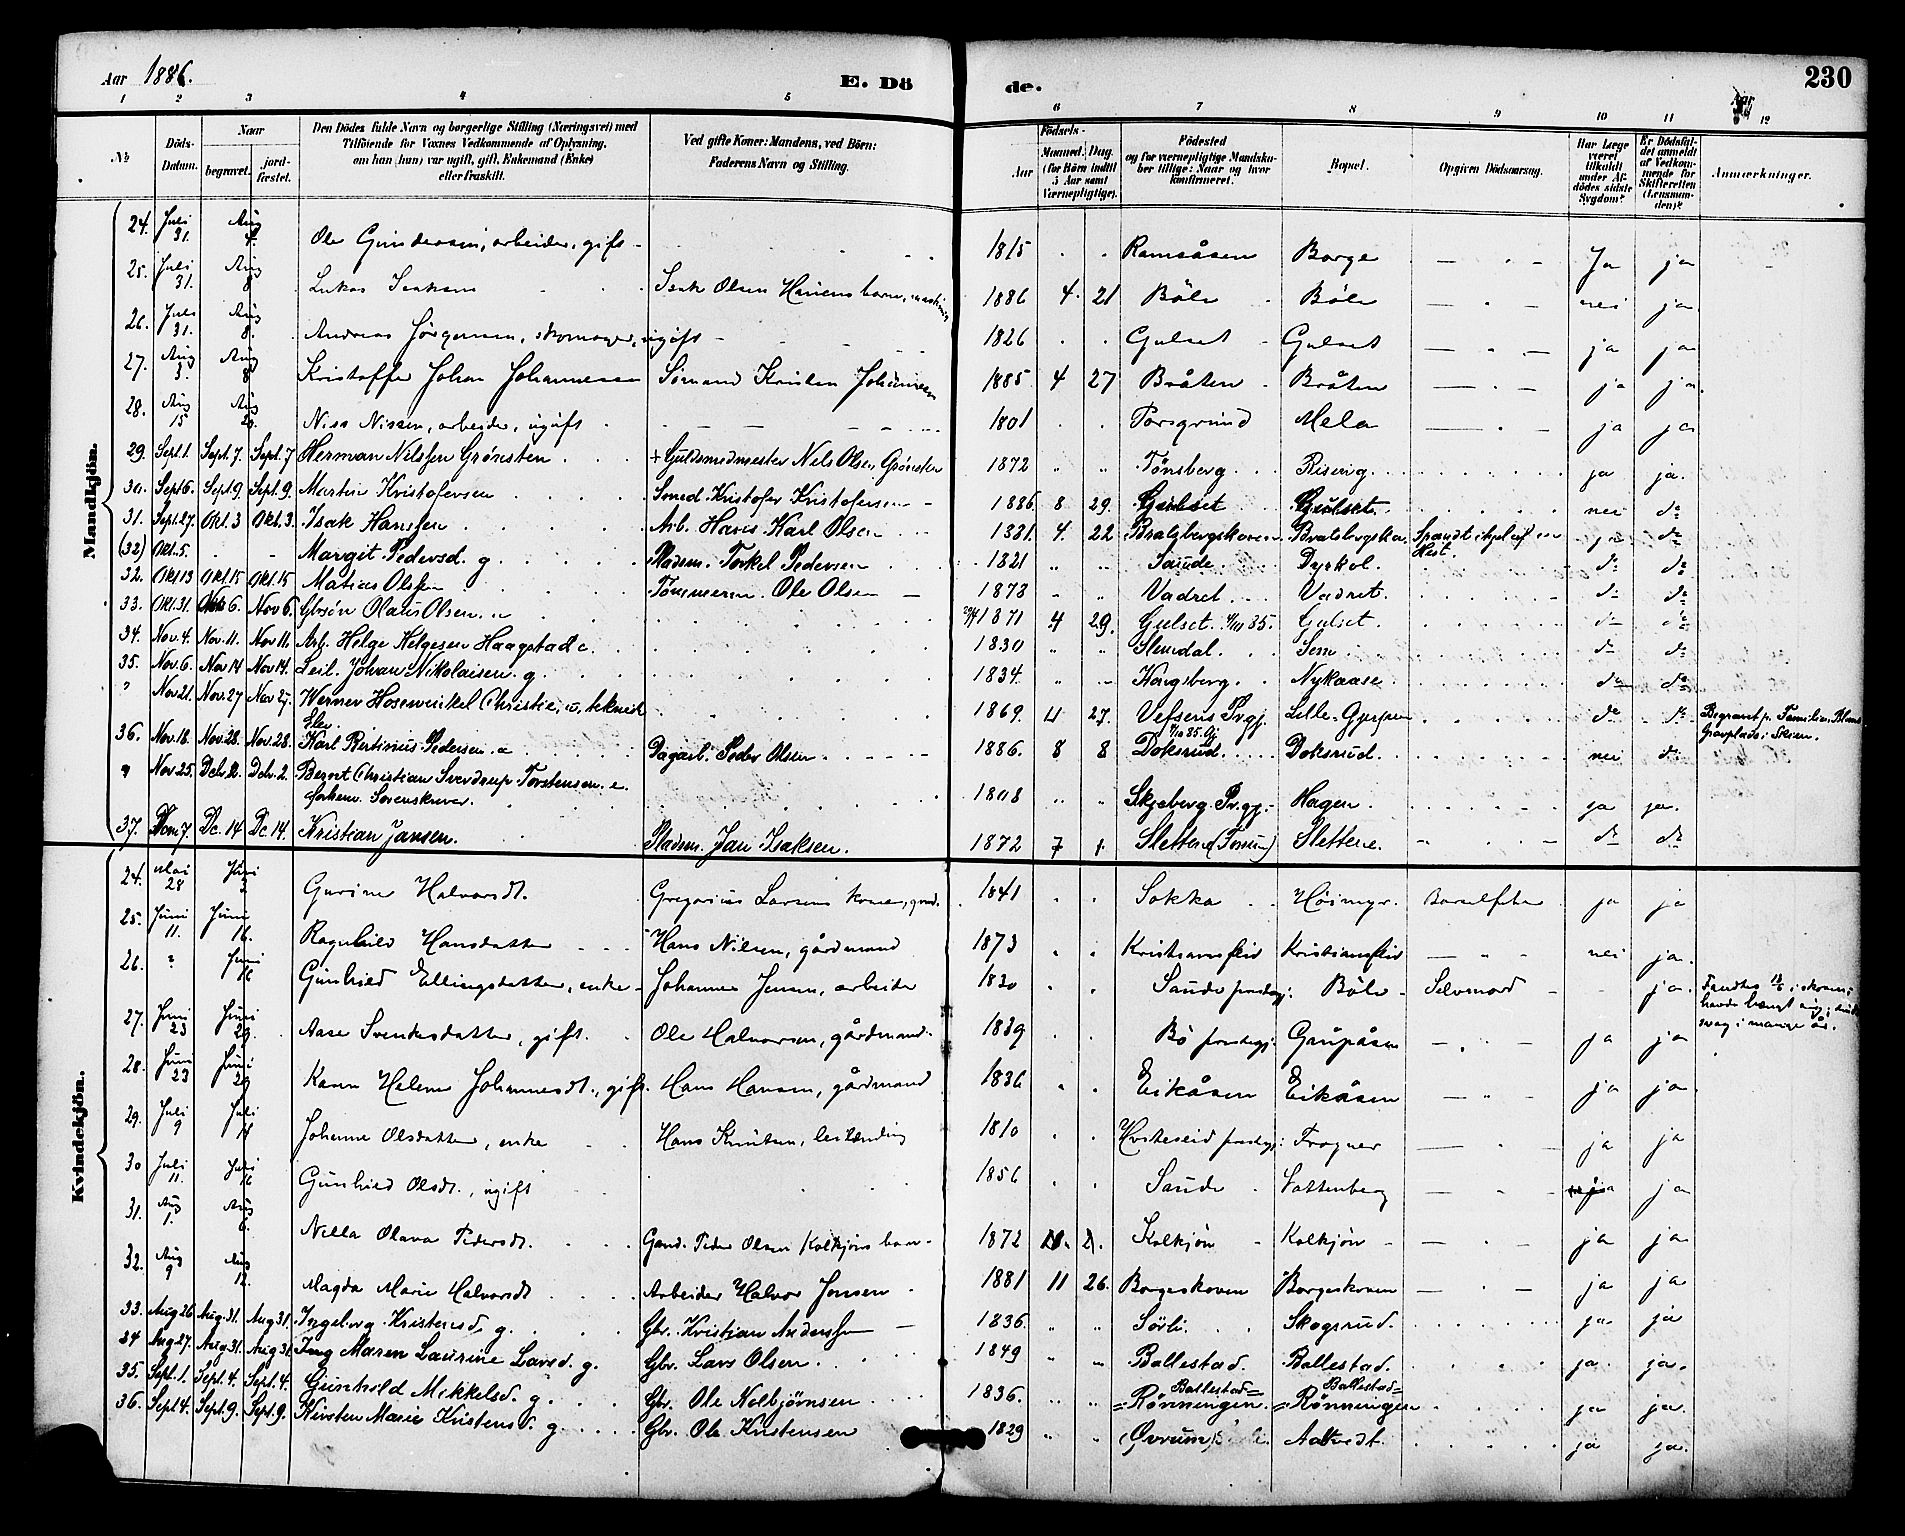 Aar 1886.
E. Dö
de.
230
1 2 3 4 5 6 7 8 9 10 11 12
No
Döds-Datum.
Naar
begravet.
jord-fæstet.
Den Dödes fulde Navn og borgerlige Stilling (Næringsvei) med
Tilföiende for Voxnes Vedkommende af Oplysning,
om han (hun) var ugift, gift, Enkemand (Enke)
eller fraskilt.
Ved gifte Koner: Mandens, ved Börn:
Faderens Navn og Stilling.
Födsels-
Aar
Maaned. Dag.
(for Börn indtil
5 Aar samt
Værnepligtige).
Födested
og for værnepligtige Mandska-
ber tillige: Naar og hvor
konfirmeret.
Bopæl.
Opgiven Dödsaarsag.
Har Læge
været
tilkaldt
under Af-
dödes sidste
Sygdom?
Er Dödsfal-
det anmeldt
af Vedkom-
mende for
Skifteretten
(Lensman-
den)?
Anmærkninger.
Mandkjön.
24. Juli 31. Aug 4. Ole Gundersen, arbeider, gift - 1815 Ramsåsen Borge Ja ja
25. Juli 31. Aug 8 Lukas Isaksen Isak Olsen Hauens barn, 1886 4. 21 Böle Böle nei ja
26. Juli 31. Aug 8. Andreas Jørgensen, skomager, ugift 1826 Gulset Gulset ja ja
27. Aug 3. Aug 8 Kristoffer Johan Johannesen Sömand Kristen Johannesen 1885 4 27 Bråten Bråten ja ja
28. Aug 15 Aug 20. Niss Nissen, arbeider, ugift 1801 Porsgrund Mela ja ja
29. Sept. 1. Sept. 7. Sept. 7 Herman Nilssen Grönsten + Guldsmedmester Nels Olsen Grönsten 1872 " " Tönsberg Rising ja ja.
30. Sept 6. Sept 9. Sept. 9. Martin Kristofersen Smed Kristofer Kristofersen 1886 8 29. Gulset Gulset nei do
31. Sept. 27. Okt. 3 Okt. 3. Isak Hansen Arb. Hans Karl Olsen 1881. 4. 22 Bratsbergskoven Bratsbergskov. Spændt ihjel af en Hest. ja do
(32) Okt. 5. - - Margit Pedersd. g. Pladsm. Torkel Pedersen 1821 " " Saude. Dyrkol. do do
32. Okt 13 Okt 15 Okt. 15 Matias Olssen Tömmerm. Ole Olsen - 1873 " " Vadret Vadret. do do
33. Okt. 31. Nov 6. Nov 6. Gbrsön Olaus Olsen. u 29/4 1871 4 29. Gulset. 4/10 85. Gulset. do do
34. Nov. 4. Nov. 11. Nov 11. Arb. Helge Helgesen Haagstad e. 1830 " " Slemdal. Sem do do
35. Nov. 6. Nov 14 Nov 14. Seil. Johan Nikolaisen. g. 1834. " " Kongsberg. Nykaase. do do
" Nov 21. Nov. 27 Nov 27. Werner Hosewinkel Christie, u, teknisk Elev. 1869. 4 27. Vefsens Prgj. 4/10 85. Gj. Lille-Gjerpen do do Begravet p. Familien Gravplads i Skien.
36. Nov. 18. Nov. 28. Nov. 28. Karl Bertinius Pedersen. Dagarb. Peder Olsen 1886. 8 8 Doksrud. Doksrud. nei do
" Nov 25. Dcb. 2. Dcb. 2. Bernt Christian Sverdrup Torstensen. e. forhenv. Sorenskriver. 1808 " " Skjeberg Prgj. Hagen. ja ja.
37. 7. Dc. 14 Dc 14. Kristian Jansen. Pladsm. Jan Isaksen. 1872 7 1. Slettene Slettene. do do
Kvindekjön.
24. Mai 28 Juni 3. Gurine Halvorsdt. Gregorius Larsens kone, gmd. 1841 Sokka Höimyr. Barselfeber ja ja
25. Juni 11. Juni 16. Ragnhild Hansdatter Hans Nilsen, gårdmand 1873 Kristiansfeie Kristiansfeie nei ja.
26. ? Juni 16 Gunhild Ellingsdatter, enke - Johannes Jensen, arbeider 1830 Saude prestegj: Böle Selvmord ja. Fandtes i skoven; havde hængt sig; sind svag i mange år.
27. Juni 23 Juni 29. Aase Svenkesdatter, gift. Ole Halvorsen, gårdmand. 1839 Bö prestegj: Gaupåsen ja ja
28. Juni 23 Juni 29 Karen Helene Johannesdt., gift. Hans Hansen, gårdmand 1836 Eikåsen Eikåsen ja ja
29. Juli 9 Juli 14 Johanne Olsdatter, enke Hans Knutsen, 1810 Hviteseid prestegj: Frogner ja ja
30 Juli 11. Juli 16 Gunhild Olsdt., ugift 1856 Saude Vattenberg ja ja
31. Aug 1. Aug 6. Nella Olava Pedersdt. Gmd. Peder Olsen Kolkjøns barn 1872 Kolkjön Kolkjön ja ja
32. Aug 9 Aug 12. Magda Marie Halvorsdt Arbeider Halvor Jensen 1881 11 26. Borgeskoven Borgeskoven ja ja
33. Aug 26 Aug. 31. Aug 31. Ingeborg Kristensd. g. Gbr. Kristian Anderssen 1836. " " Sörli. Skogsrud. ja. ja
34 Aug 27. Aug 31. Aug 31. Ing Maren Laurine Larsd. g. Gbr. Lars Olsen. 1849 " " Ballestad. Ballestad. ja. ja.
35. Sept. 1. Sept. 4. Sept. 4. Gunhild Mikkelsd. g. Gbr. Ole Kolbjørnsen 1836. " " Ballestad=Rönningen. Ballestad=Rönningen ja ja.
36. Sept 4. Sept. 9. Sept. 9. Kirsten Marie Kristensd. g. Gbr. Ole Kristensen 1829 " " (Øvrum) Aaltvedt. ja ja.